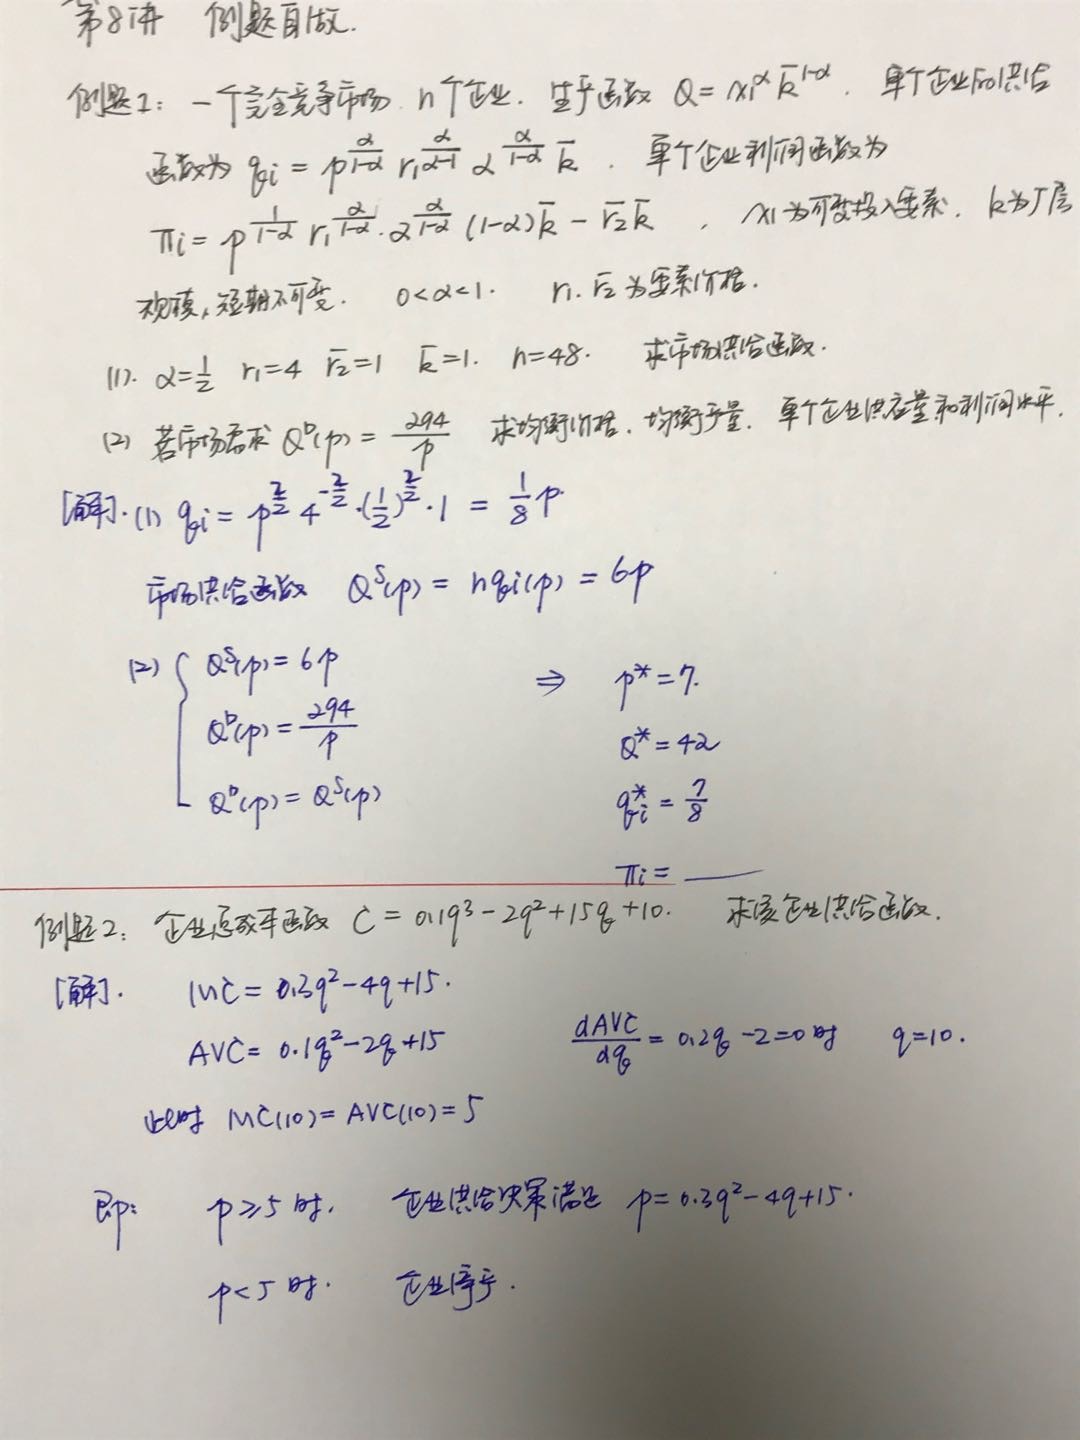 第8讲 例题自做.
例题1: 一个完全竞争市场. n个企业. 生产函数 Q = x₁^α k̄^(1-α). 单个企业的供给
函数为 qi = p^(α/(1-α)) r₁^(α/(α-1)) α^(α/(1-α)) k̄. 单个企业利润函数为
πi = p^(1/(1-α)) r₁^(α/(1-α))·α^(α/(1-α)) (1-α)k̄ - r̄₂k̄, x₁为可变投入要素. k为厂房
规模,短期不可变. 0<α<1. r₁. r̄₂为要素价格.
(1). α=1/2 r₁=4 r̄₂=1 k̄=1. n=48. 求市场供给函数.
(2) 若市场需求 Qᴰ(p) = 294/p 求均衡价格、均衡产量、单个企业供应量和利润水平.
[解].(1) qi = p^(2/2) 4^(-2/2)·(1/2)^(2/2)·1 = 1/8 p.
市场供给函数 Qˢ(p) = nqi(p) = 6p
(2) { Qˢ(p) = 6p ⇒ p* = 7.
Qᴰ(p) = 294/p Q* = 42
Qᴰ(p) = Qˢ(p) qi* = 7/8
πi = ——
例题2: 企业总成本函数 C = 0.1q³ - 2q² + 15q + 10. 求该企业供给函数.
[解]. MC = 0.3q² - 4q + 15.
AVC = 0.1q² - 2q + 15 dAVC/dq = 0.2q - 2 = 0 时 q = 10.
此时 MC(10) = AVC(10) = 5
即: p ≥ 5 时. 企业供给决策满足 p = 0.3q² - 4q + 15.
p < 5 时. 企业停产.